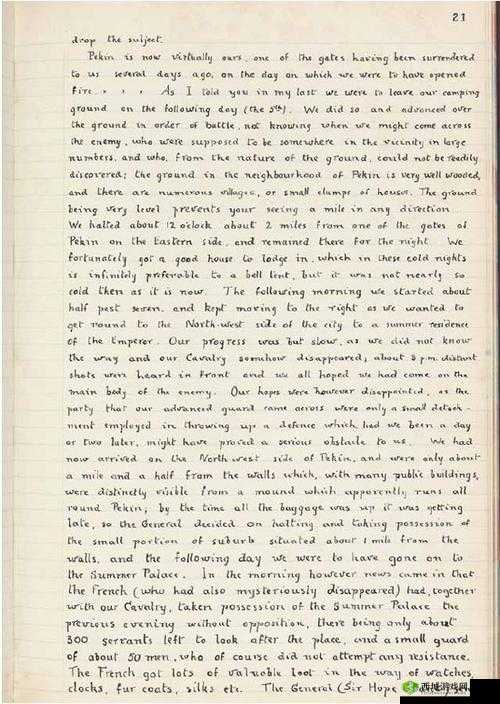 21
drop the subject.
Pekin is now virtually ours, one of the gates having been surrendered
to us several days ago, on the day on which we were to have opened
fire. . . . As I told you in my last we were to leave our camping
ground on the following day (the 5th). We did so and advanced over
the ground in order of battle, not knowing when we might come across
the enemy, who were supposed to be somewhere in the vicinity in large
numbers, and who, from the nature of the ground, could not be readily
discovered; the ground in the neighbourhood of Pekin is very well wooded,
and there are numerous villages, or small clumps of houses. The ground
being very level prevents your seeing a mile in any direction.
We halted about 12 o'clock about 2 miles from one of the gates of
Pekin on the Eastern side, and remained there for the night. We
fortunately got a good house to lodge in, which in these cold nights
is infinitely preferable to a bell tent, but it was not nearly so
cold then as it is now. The following morning we started about
half past seven, and kept moving to the right as we wanted to
get round to the North-West side of the city to a summer residence
of the Emperor. Our progress was but slow, as we did not know
the way and our Cavalry somehow disappeared, about 3 p.m. distant
shots were heard in front and we all hoped we had come on the
main body of the enemy. Our hopes were however disappointed, as the
party that our advanced guard came across were only a small detach-
ment employed in throwing up a defence which had we been a day
or two later, might have proved a serious obstacle to us. We had
now arrived on the North West side of Pekin, and were only about
a mile and a half from the walls which, with many public buildings,
were distinctly visible from a mound which apparently runs all
round Pekin; by the time all the baggage was up it was getting
late, so the General decided on halting and taking possession of
the small portion of suburb situated about 1 mile from the
walls, and the following day we were to have gone on to
the Summer Palace. In the morning however news came in that
the French (who had also mysteriously disappeared) had, together
with our Cavalry, taken possession of the Summer Palace the
previous evening without opposition, there being only about
300 servants left to look after the place, and a small guard
of about 50 men, who of course did not attempt any resistance.
The French got lots of valuable loot in the way of watches,
clocks, fur coats, silks etc. The General (Sir Hope
西城游戏网